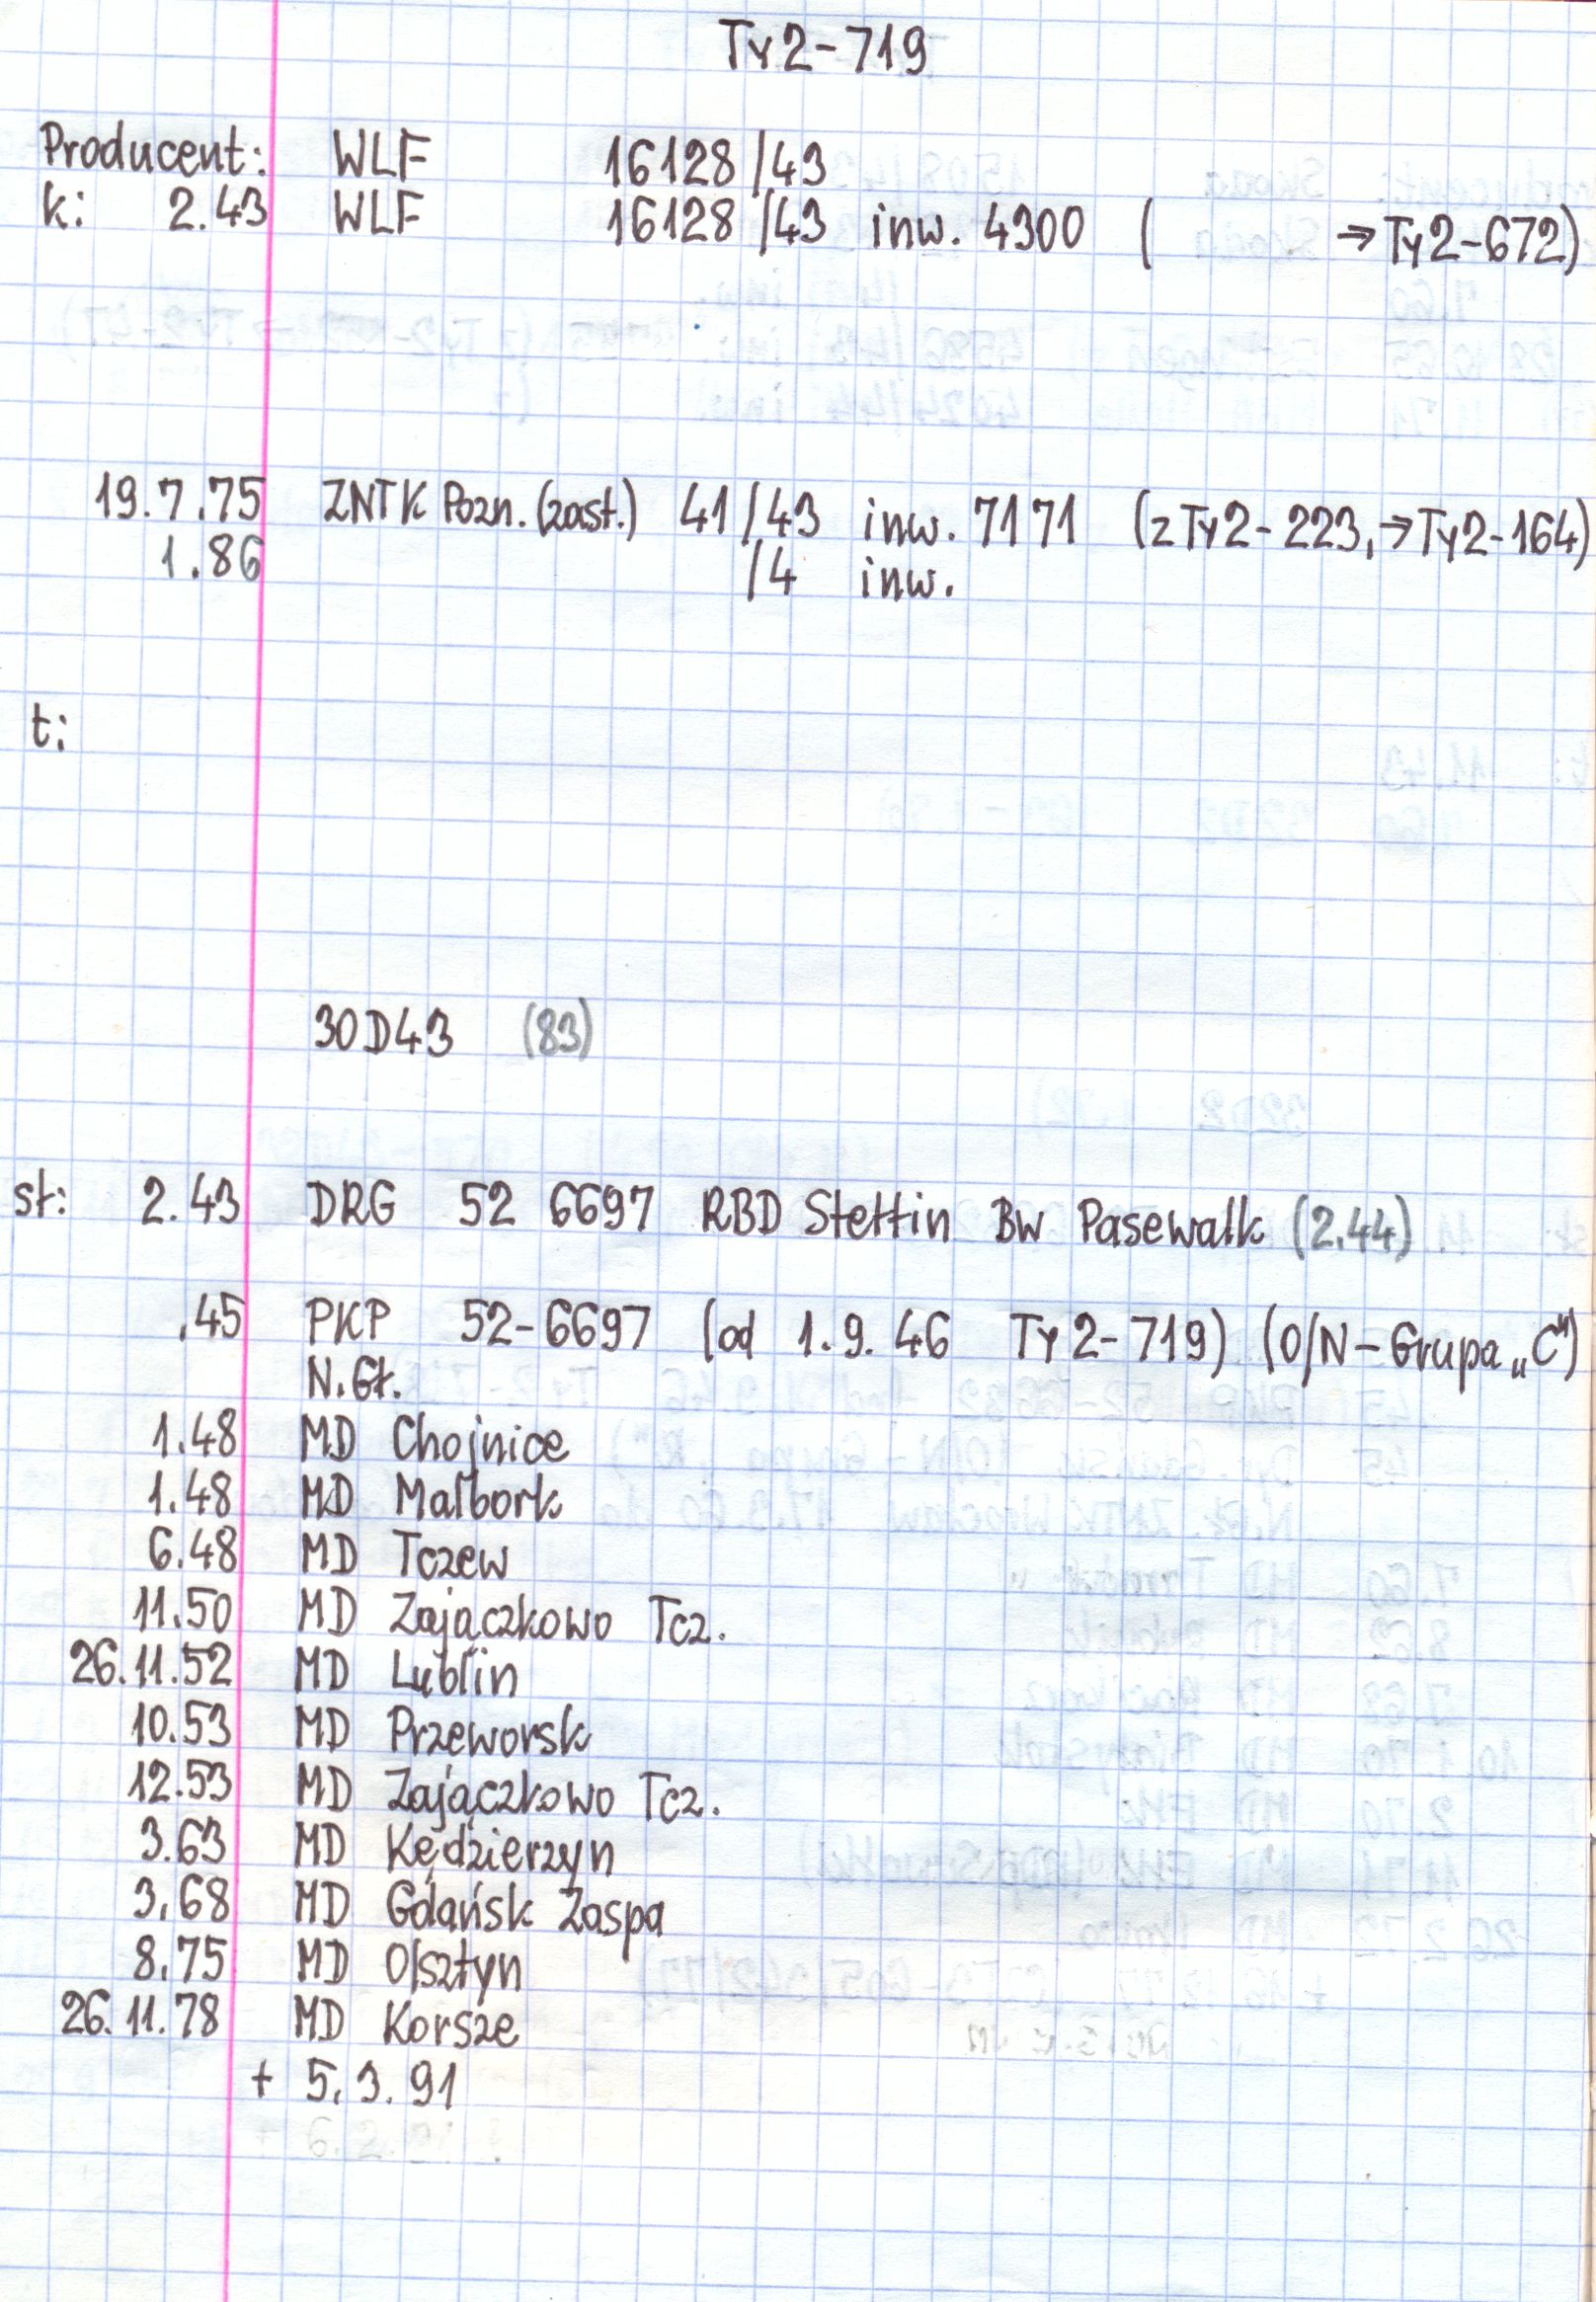 Ty2-719
Producent: WLF 16128/43
k: 2.43 WLF 16128/43 inw. 4300 ( →Ty2-672)
19.7.75 ZNTK Pozn. (zast.) 41/43 inw. 7171 (z Ty2-223, →Ty2-164)
1.86 /4 inw.
t:
30D43 (83)
st: 2.43 DRG 52 6697 RBD Stettin Bw Pasewalk (2.44)
.45 PKP 52-6697 (od 1.9.46 Ty2-719) (O/N-Grupa „C")
N.Gł.
1.48 MD Chojnice
1.48 MD Malbork
6.48 MD Tczew
11.50 MD Zajączkowo Tcz.
26.11.52 MD Lublin
10.53 MD Przeworsk
12.53 MD Zajączkowo Tcz.
3.63 MD Kędzierzyn
3.68 MD Gdańsk Zaspa
8.75 MD Olsztyn
26.11.78 MD Korsze
+ 5.3.91